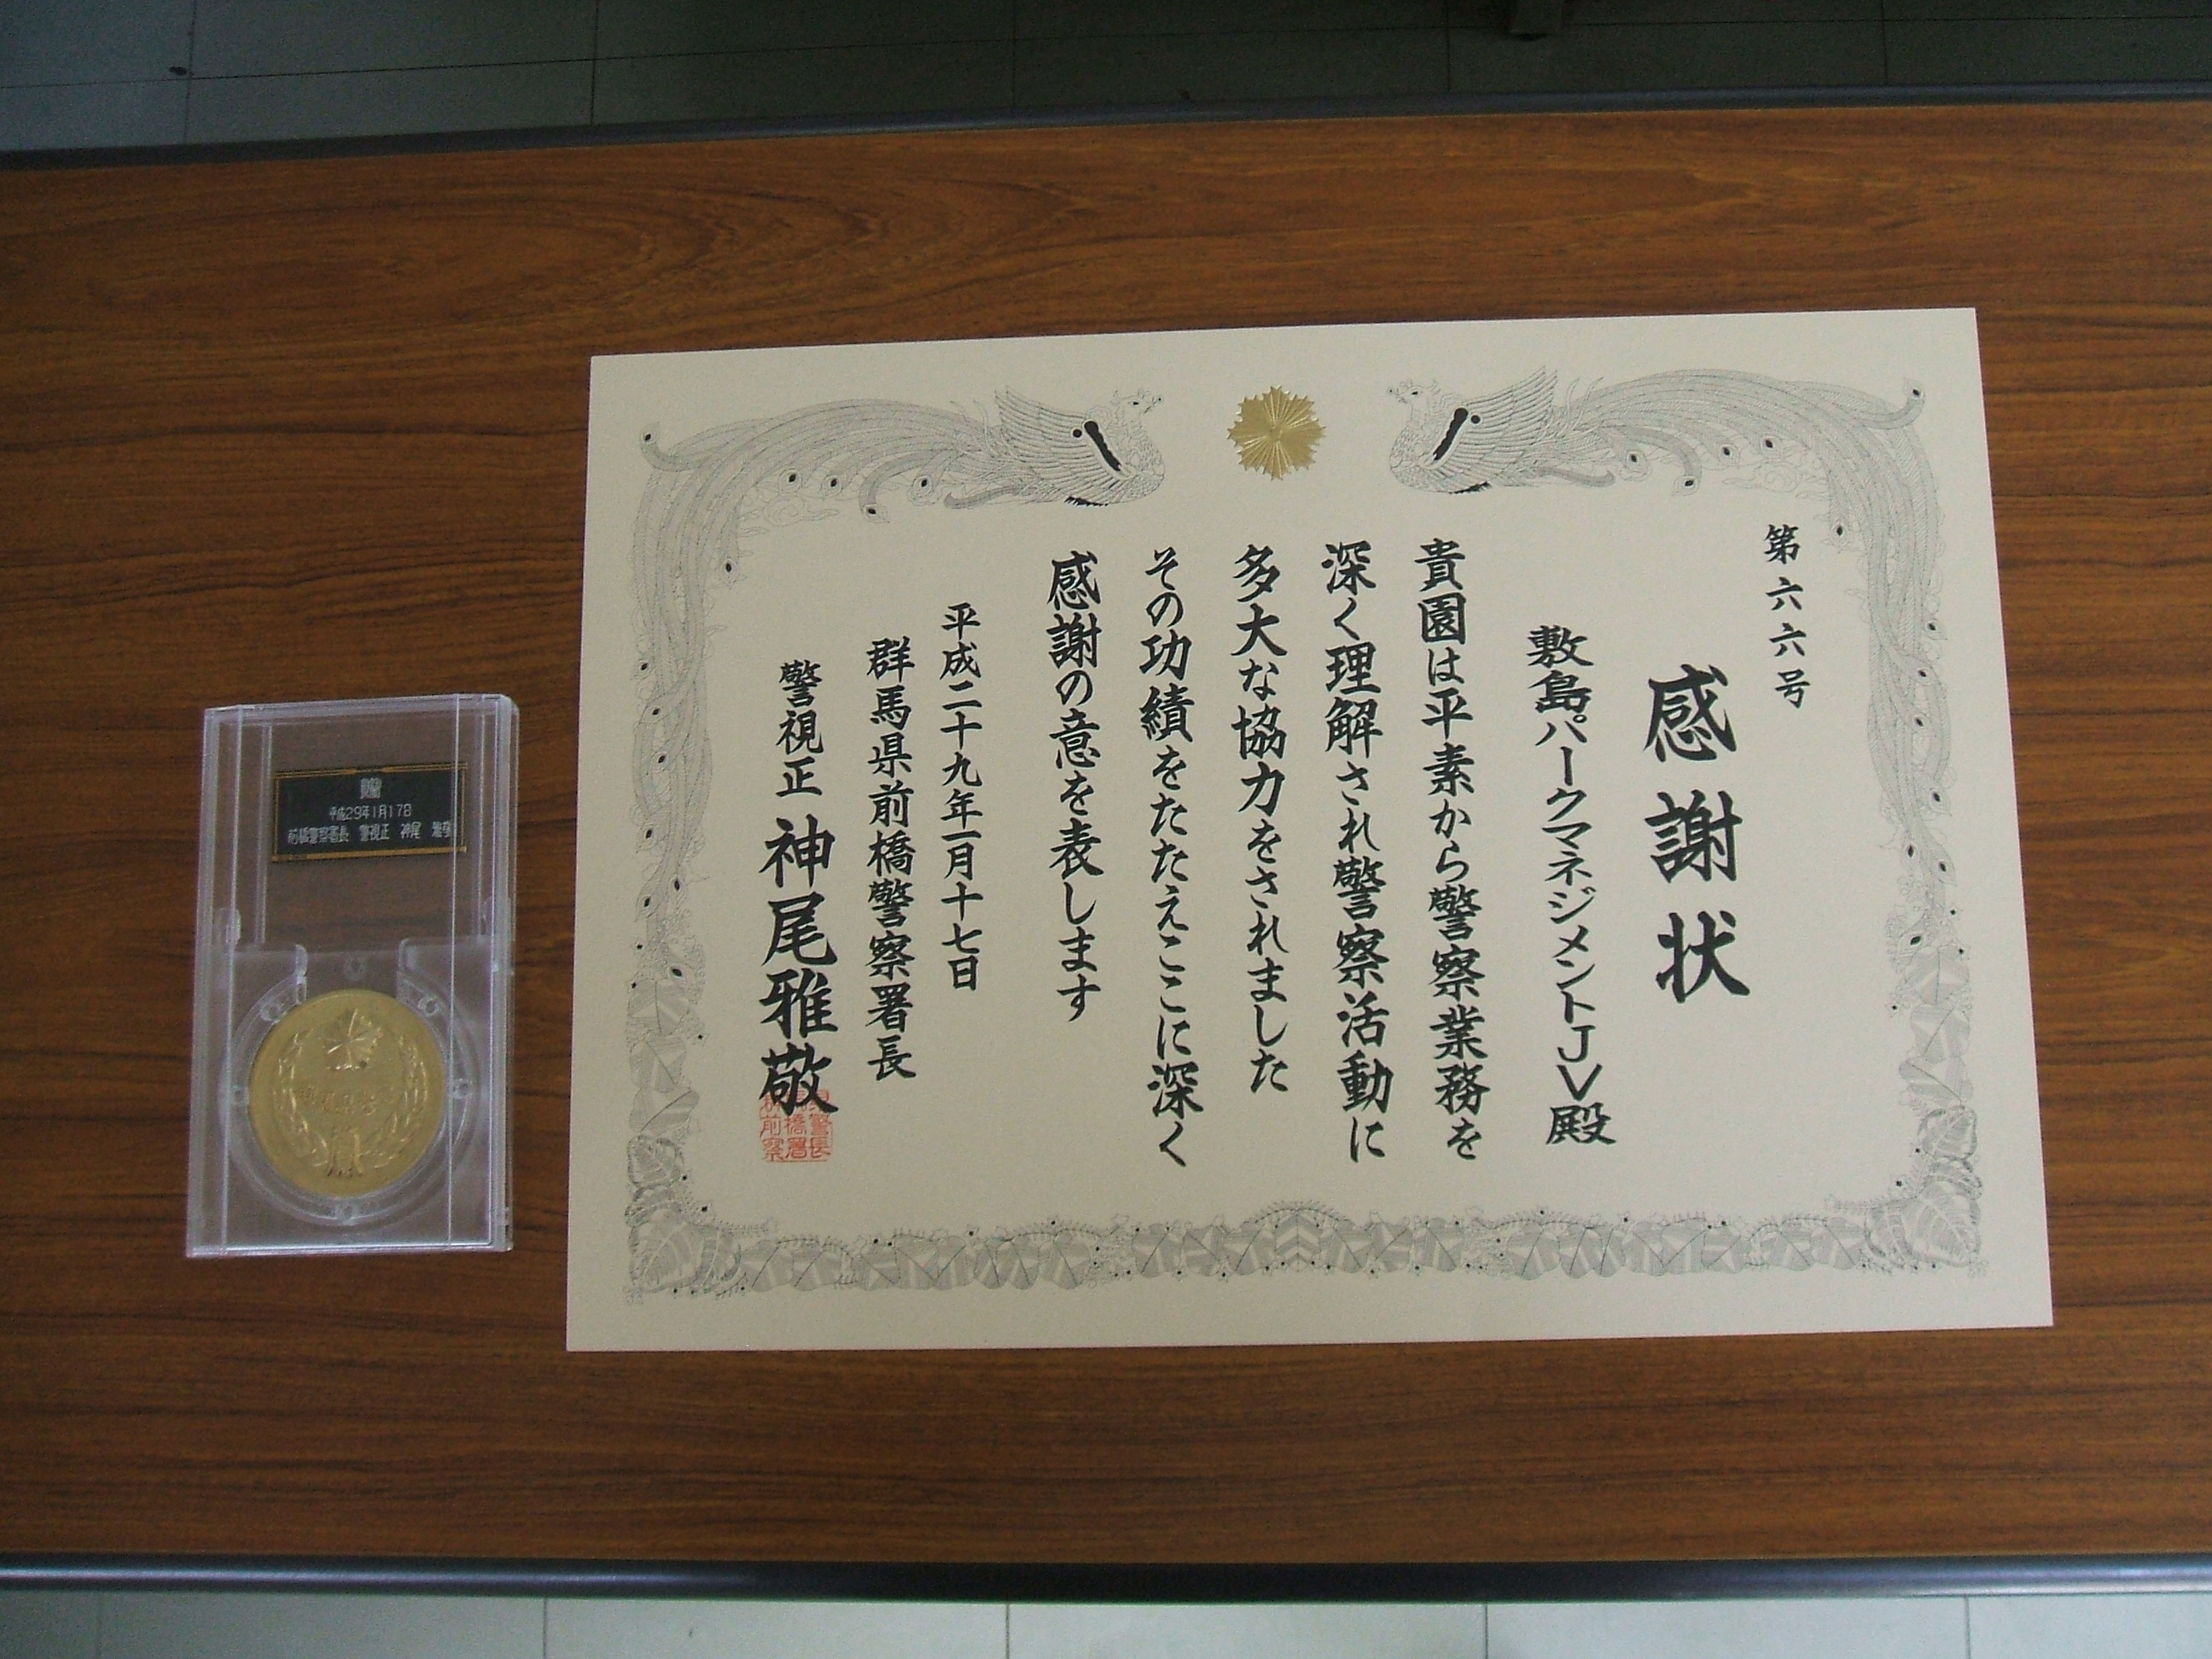 第六六号
感謝状
敷島パークマネジメントJV殿
貴園は平素から警察業務を
深く理解され警察活動に
多大な協力をされました
その功績をたたえここに深く
感謝の意を表します
平成二十九年一月十七日
群馬県前橋警察署長
警視正 神尾雅敬
平成29年1月17日
前橋警察署長 警視正 神尾 雅敬